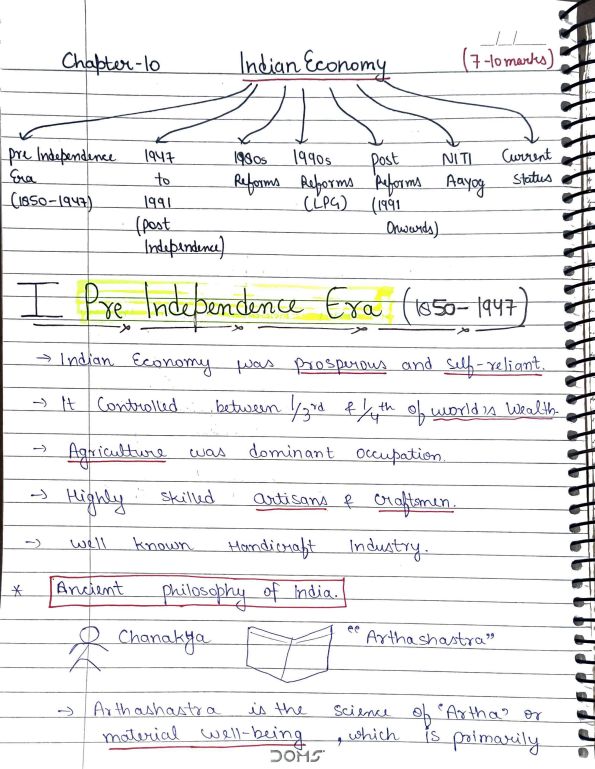 __/__/__
Chapter-10 Indian Economy (7-10 marks)
Pre Independence Era (1850-1947)
1947 to 1991 (Post Independence)
1980s Reforms
1990s Reforms (LPG)
Post Reforms (1991 Onwards)
NITI Aayog
Current Status
I Pre Independence Era (1850-1947)
→ Indian Economy was prosperous and self-reliant.
→ It Controlled between 1/3rd & 1/4th of world's Wealth.
→ Agriculture was dominant occupation.
→ Highly skilled artisans & craftsmen.
→ well known Handicraft Industry.
* Ancient philosophy of India.
Chanakya "Arthashastra"
→ Arthashastra is the science of 'Artha' or
material well-being, which is primarily
DOMS